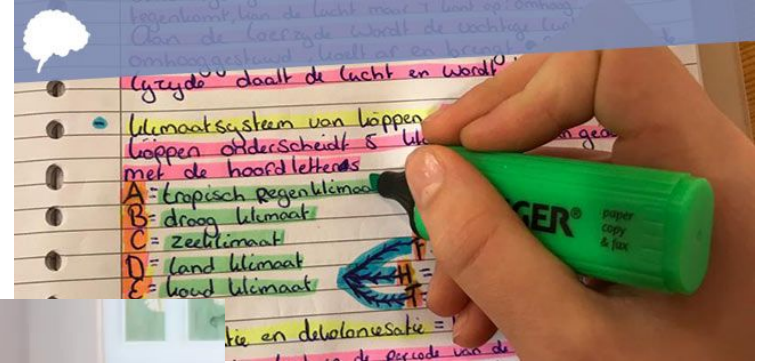 tegenkomt, kan de lucht maar 1 kant op: omhoog.
Aan de loefzyde wordt de vochtige
omhooggestuwd koelt af en brengt
Lyzyde daalt de lucht en wordt
klimaatsysteem van köppen
köppen onderscheidt 5
met de hoofdletters
A = tropisch regenklimaa
B = droog klimaat
C = zeeklimaat
D = land klimaat
E = koud klimaat
T
H =
T =
GER®
paper
copy
& fax
tie en dekolonisatie =
de periode van de